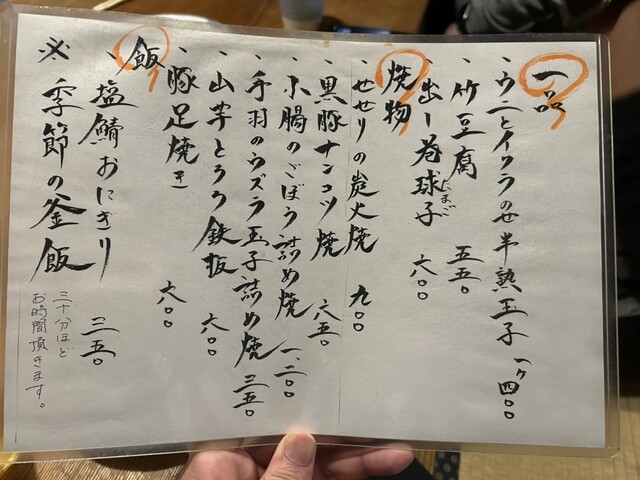 一品
、ウニとイクラのせ半熟玉子 一ケ四〇〇
、竹豆腐 五五〇
、出し巻球子 六〇〇
たまご
焼物
、せせりの炭火焼 九〇〇
、黒豚ナンコツ焼 六五〇
、小腸のごぼう詰め焼 一、二〇〇
、手羽のウズラ玉子詰め焼 三五〇
、山芋とろろ鉄板 六〇〇
、豚足焼き 六〇〇
飯
、塩鯖おにぎり 二五〇
※季節の釜飯
三十分ほど
お時間頂きます。